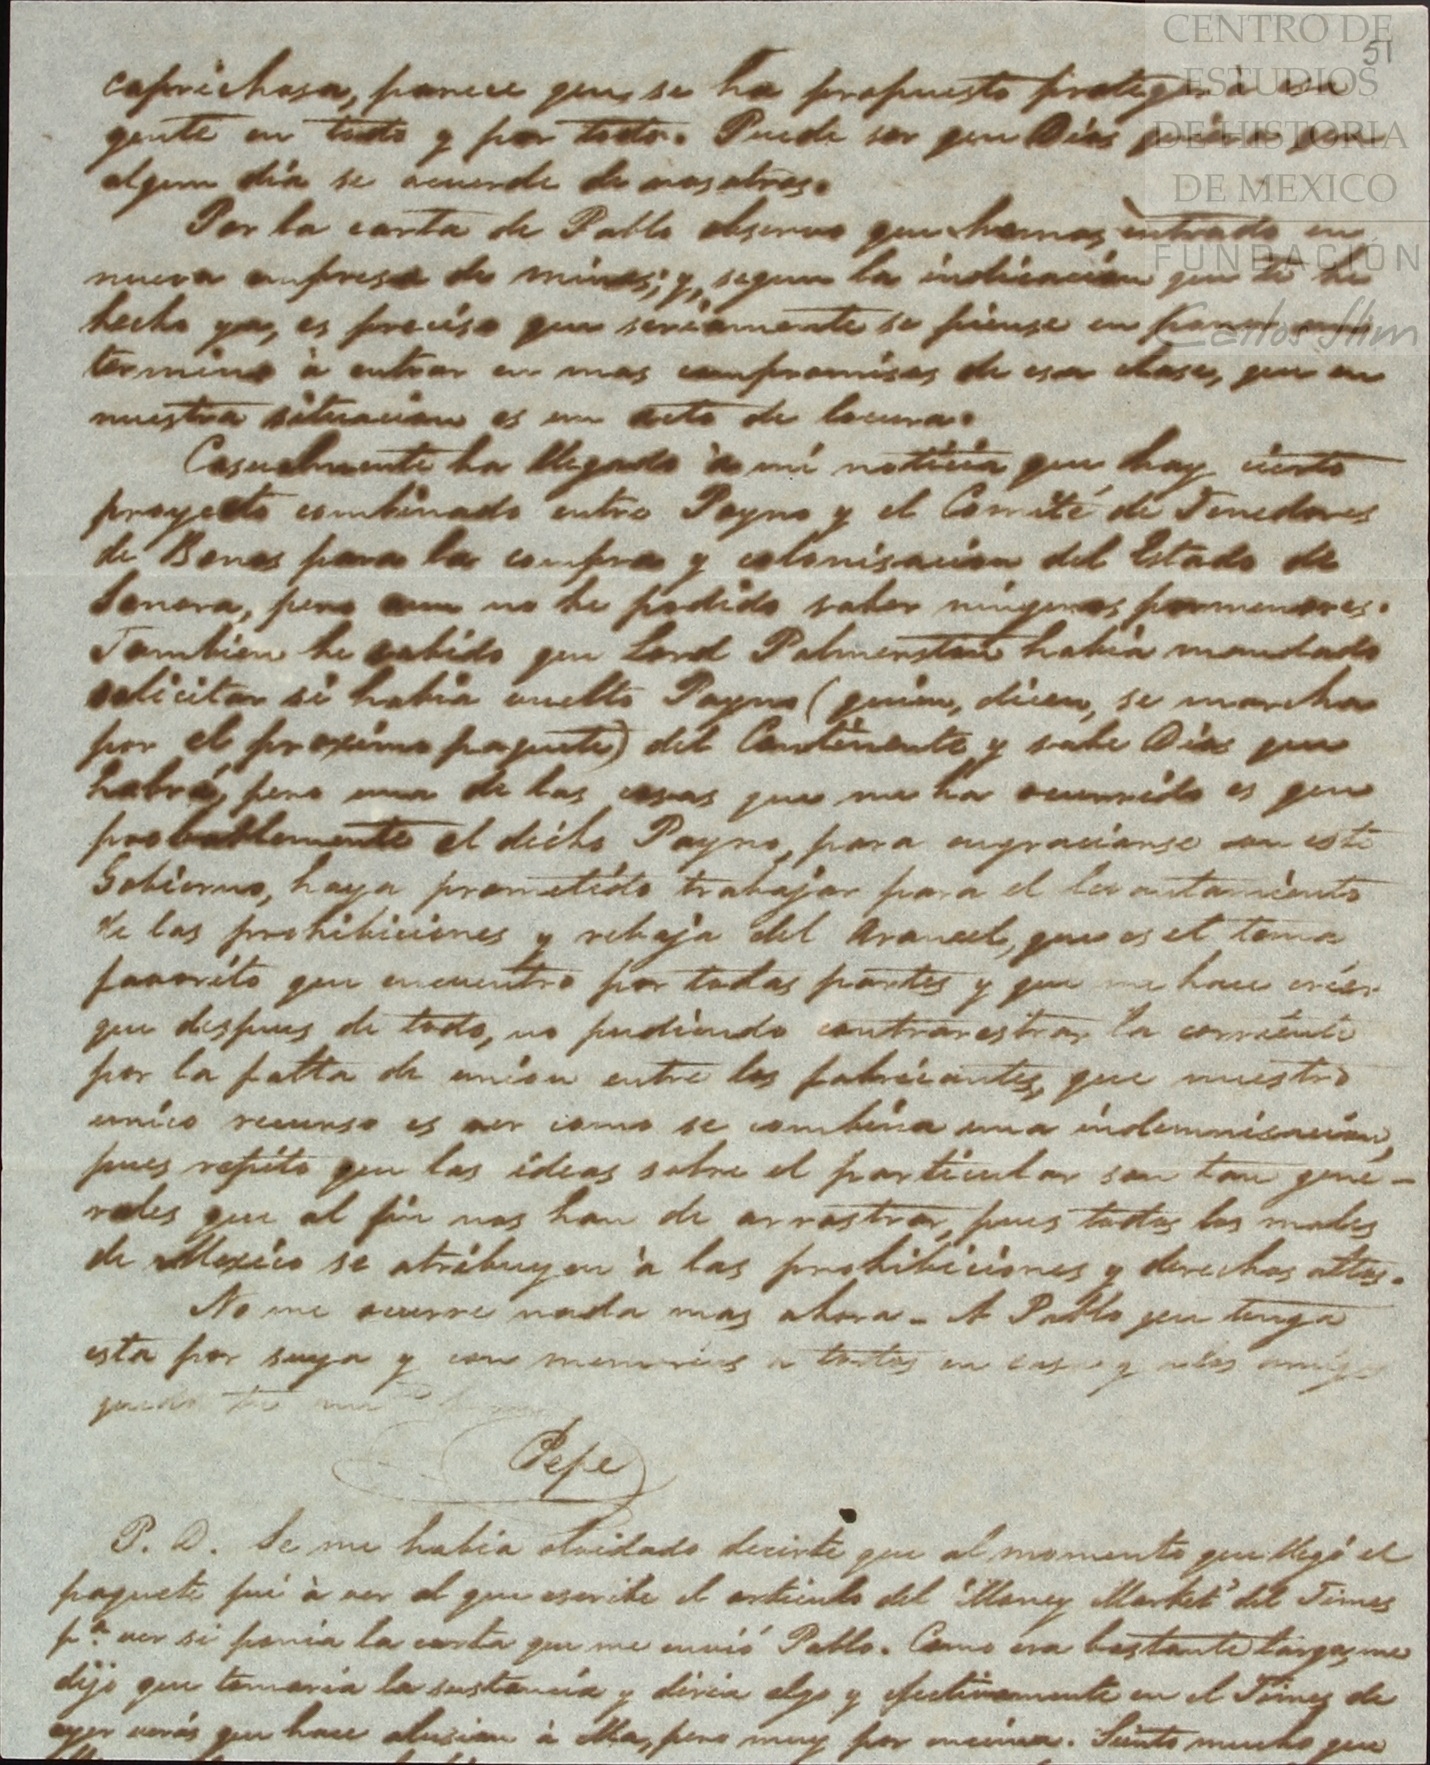 CENTRO DE
ESTUDIOS
DE HISTORIA
DE MEXICO
FUNDACIÓN
Carlos Slim
51
caprichosa, parece que se ha propuesto proteger à
gente en todo y por todo. Puede ser que Dios
algun dia se acuerde de nosotros.
Por la carta de Pablo observo que hemos entrado en
nueva empresa de minas; y, segun la indicacion que te he
hecho ya, es preciso que seriamente se piense en poner
termino à entrar en mas compromisos de esa clase, que en
nuestra situacion es un acto de locura.
Casualmente ha llegado à mi noticia que hay cierto
proyecto combinado entre Payno y el Comité de Tenedores
de Bonos para la compra y colonisacion del Estado de
Sonora, pero aun no he podido saber ningunos pormenores.
Tambien he sabido que Lord Palmerston habia mandado
solicitar si habia vuelto Payno (quien, dicen, se marcha
por el proximo paquete) del Continente, y sabe Dios que
habrá, pero una de las cosas que me ha ocurrido es que
probablemente el dicho Payno, para engraciarse con este
Gobierno, haya prometido trabajar para el levantamiento
de las prohibiciones y rebaja del Arancel, que es el tema
favorito que encuentro por todas partes y que me hace creer
que despues de todo, no pudiendo contrarestrar la corriente
por la falta de union entre los fabricantes, que nuestro
unico recurso es ver como se combina una indemnisacion,
pues repito que las ideas sobre el particular son tan gene-
rales que al fin nos han de arrastrar, pues todos los males
de Mexico se atribuyen à las prohibiciones y derechos altos.
No me ocurre nada mas ahora. A Pablo que tenga
esta por suya y con memorias a todos en casa y a los amigos
quedo tu
Pepe
P. D. Se me habia olvidado decirte que al momento que llegó el
paquete fui à ver al que escribe el articulo del "Money Market" del Times
pa. ver si ponia la carta que me envió Pablo. Como era bastante larga, me
dijo que tomaria la sustancia y diria algo y efectivamente en el Times de
ayer verás que hace alusion à ella, pero muy por encima. Siento mucho que